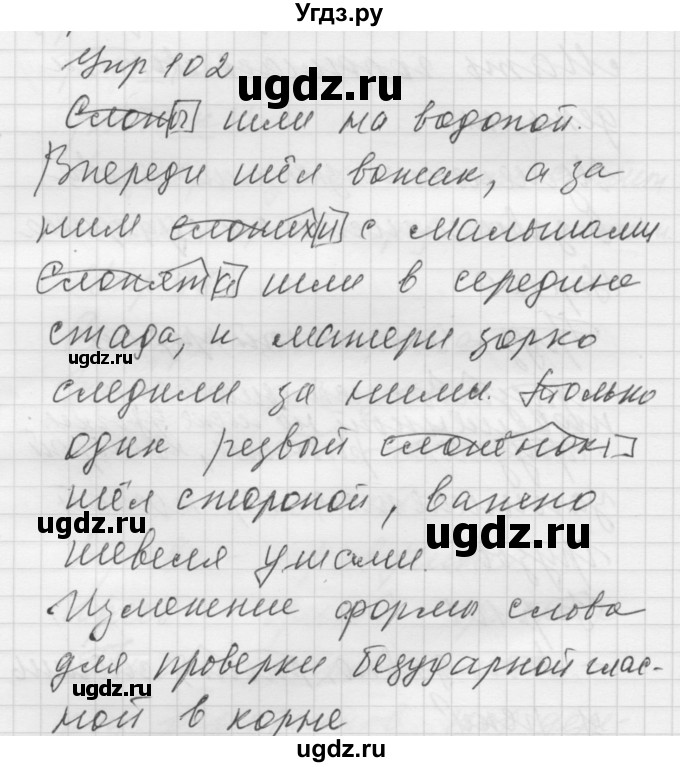 Угдз.ру
Упр 102
ugdz.ru
Слоны шли на водопой.
Впереди шёл вожак, а за
ним слонихи с малышами
Слонята шли в середине
стада, и матери зорко
ugdz.ru
следили за ними. Только
один резвый слонёнок
шёл стороной, важно
ugdz.ru
ugdz.ru
шевеля ушами.
Изменение формы слова
для проверки безударной глас-
ugdz.ru
ной в корне
ugdz.ru